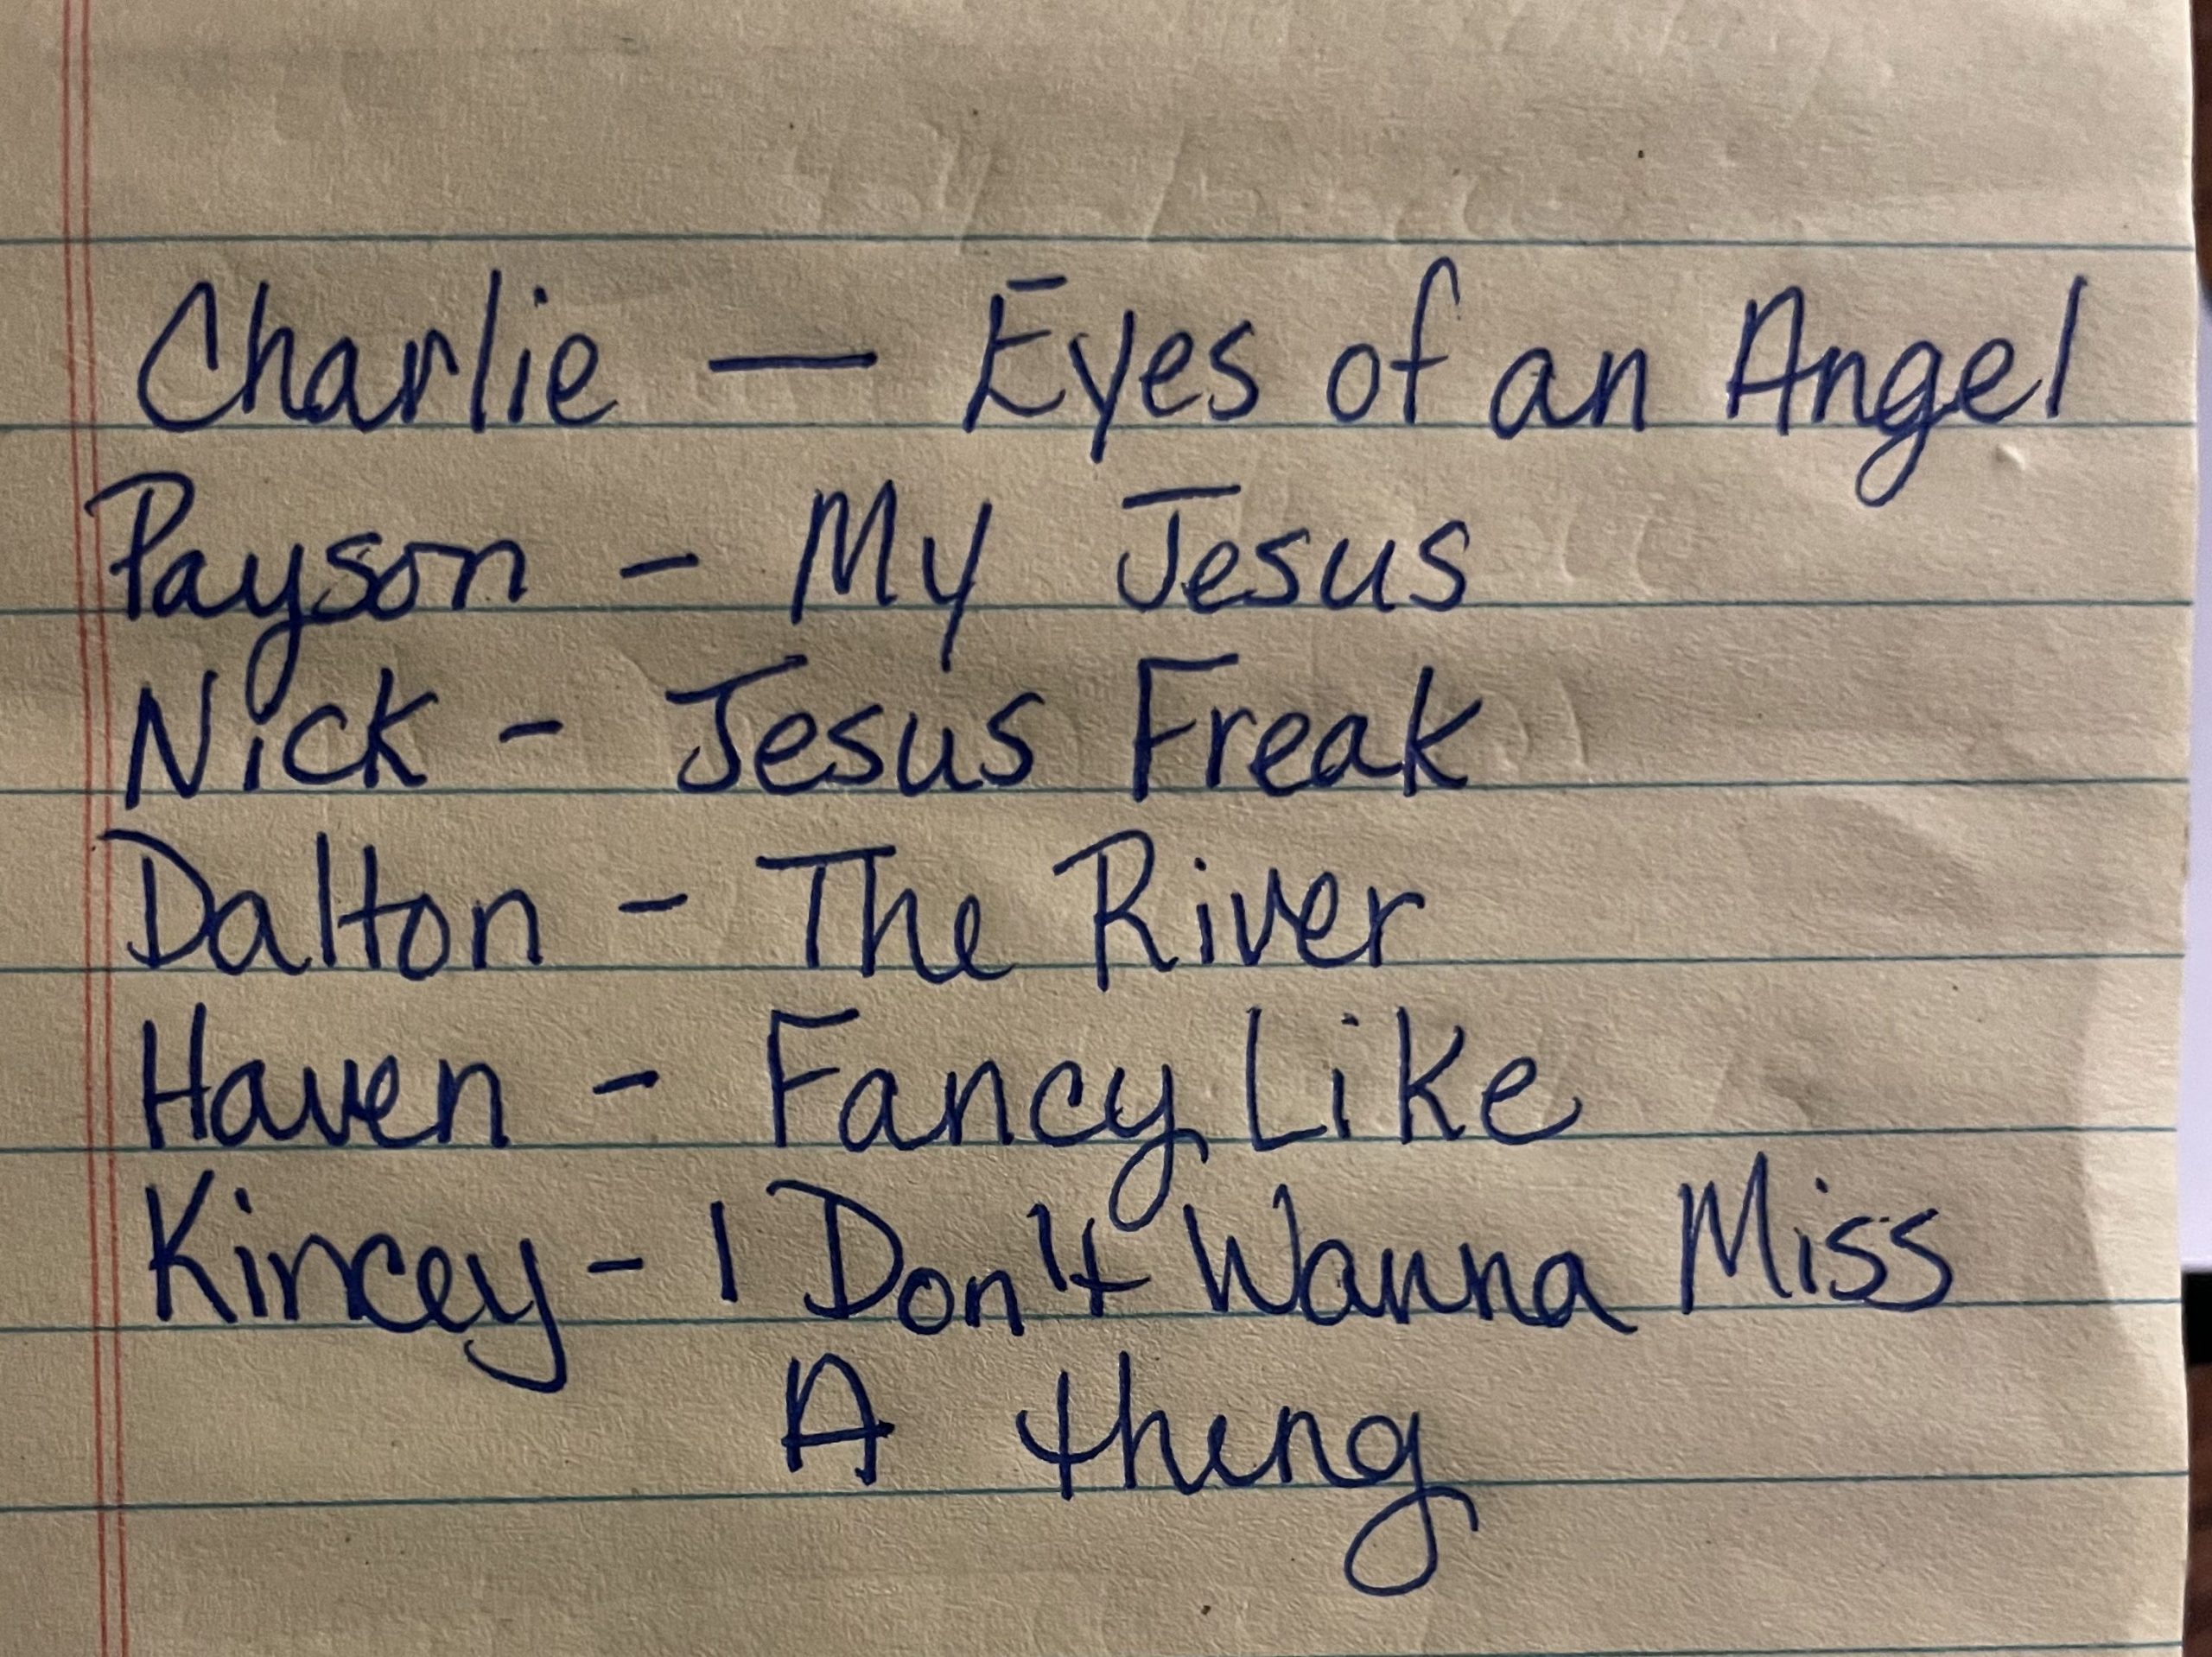 Charlie — Eyes of an Angel
Payson - My Jesus
Nick - Jesus Freak
Dalton - The River
Haven - Fancy Like
Kincey - I Don't Wanna Miss
A thing